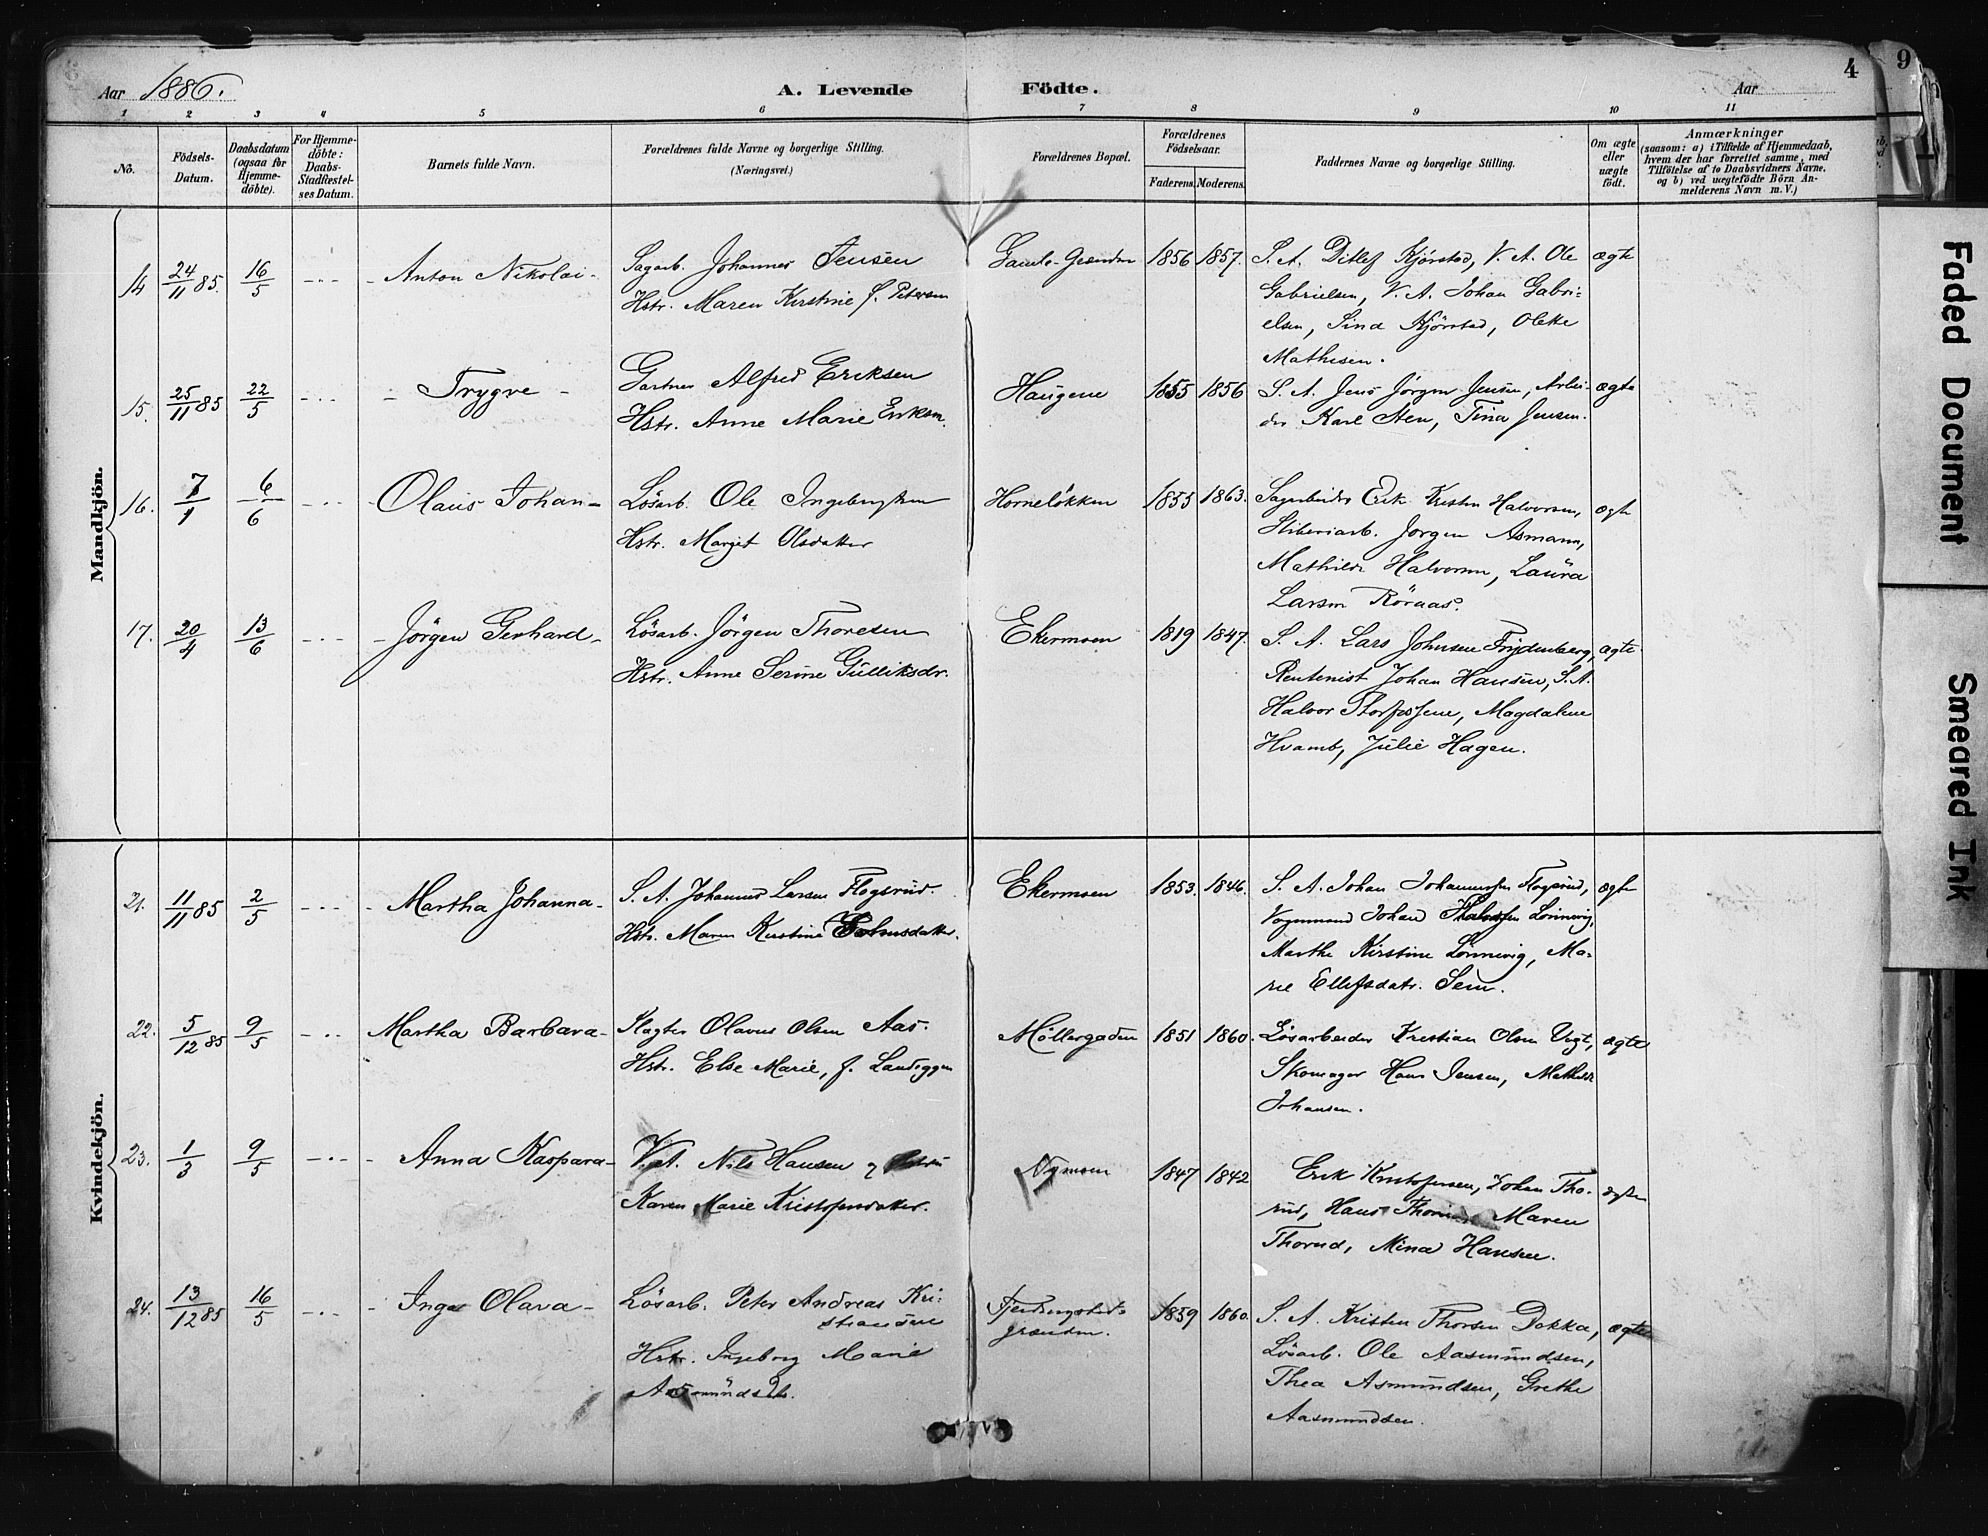 4
9
Aar 1886.
A. Levende Födte.
Aar
1 2 3 4 5 6 7 8 9 10 11
No.
Födsels-
Datum.
Daabsdatum
(ogsaa for
Hjemme-
döbte).
For Hjemme-
döbte:
Daabs-
Stadfæstel-
ses Datum.
Barnets fulde Navn.
Forældrenes fulde Navne og borgerlige Stilling.
(Næringsvei.)
Forældrenes Bopæl.
Forældrenes
Födselsaar.
Faderens. Moderens.
Faddernes Navne og borgerlige Stilling.
Om ægte
eller
uægte
født.
Anmærkninger
(saasom: a) i Tilfælde af Hjemmedaab,
hvem der har forrettet samme, med
Tilföielse af to Daabsvidners Navne,
og b) ved uægtefödte Börn An-
melderens Navn m. V.)
Mandkjön.
14 24/11 85. 16/5 Anton Nikolai
Sagarb. Johannes Jensen
Hstr. Maren Kirstine f. Petersen
1856 1857.
S. A. Ditlef Kjörstad, V. A. Ole
Gabrielsen, V. A. Johan Gabri-
elsen, Sina Kjörstad, Olette
Mathisen.
ægte
15. 25/11 85 22/5 Trygve
Gartner Alfred Eriksen
Hstr. Anne Marie Eriksen.
Haugene 1855 1856
S. A. Jens Jörgen Jensen, Arbei-
der Karl Sten, Tina Jensen.
ægte
16. 7/1 6/6 Olaus Johan
Lösarb. Ole Ingebrigtsen
Hstr. Margit Olsdatter
Hornelökken 1855 1863.
Sagarbeider Erik Kristen Halvorsen,
Sliberiarb. Jörgen Asmann,
Mathilde Halvorsen, Laura
Larsen Röraas.
ægte
17. 20/4 13/6 Jörgen Gerhard
Lösarb. Jörgen Thoresen
Hstr. Anne Serine Gulliksdr.
Ekermoen 1819 1847.
S. A. Lars Johnsen Frydenberg,
Rentenist Johan Hansen, S. A.
Halvor Thorsen, Magdalene
Hvamb, Julie Hagen.
ægte
Kvindekjön.
21. 11/11 85 2/5 Martha Johanna
S. A. Johannes Larsen Flogsrud.
Hstr. Maren Kirstine
Ekermoen 1853. 1846.
S. A. Johan Johannesen Flogsrud,
Vognmand Johan Lönnevig,
Marthe Kirstine Lönnevig, Ma-
rie Ellefsdatr. Sem.
ægte
22. 5/12 85 9/5 Martha Barbara
Slagter Olaves Olsen Aas.
Hstr. Else Marie, f. Landeggen
Möllergaden 1851 1860.
Lösarbeider Kristian Olsen Vegt,
Skomager Hans Jensen, Mathilde
Johansen.
ægte
23. 1/3 9/5 Anna Kaspara
V. A. Nils Hansen
Karen Marie Kristofersdatter.
Nymoen 1847 1842
Erik Kristofersen, Johan Tho-
rud, Hans Maren
Thorud, Mina Hansen.
ægte
24. 13/12 85 16/5 Inga Olava
Lösarb. Peter Andreas Kri-
stiansen
Hstr. Ingeborg Marie
Aasmundsdtr.
1859 1860.
S. A. Kristen Thorsen Dokka,
Lösarb. Ole Aasmundsen,
Thea Asmundsen, Grethe
Aasmundsen.
ægte
Faded Document
Smeared Ink